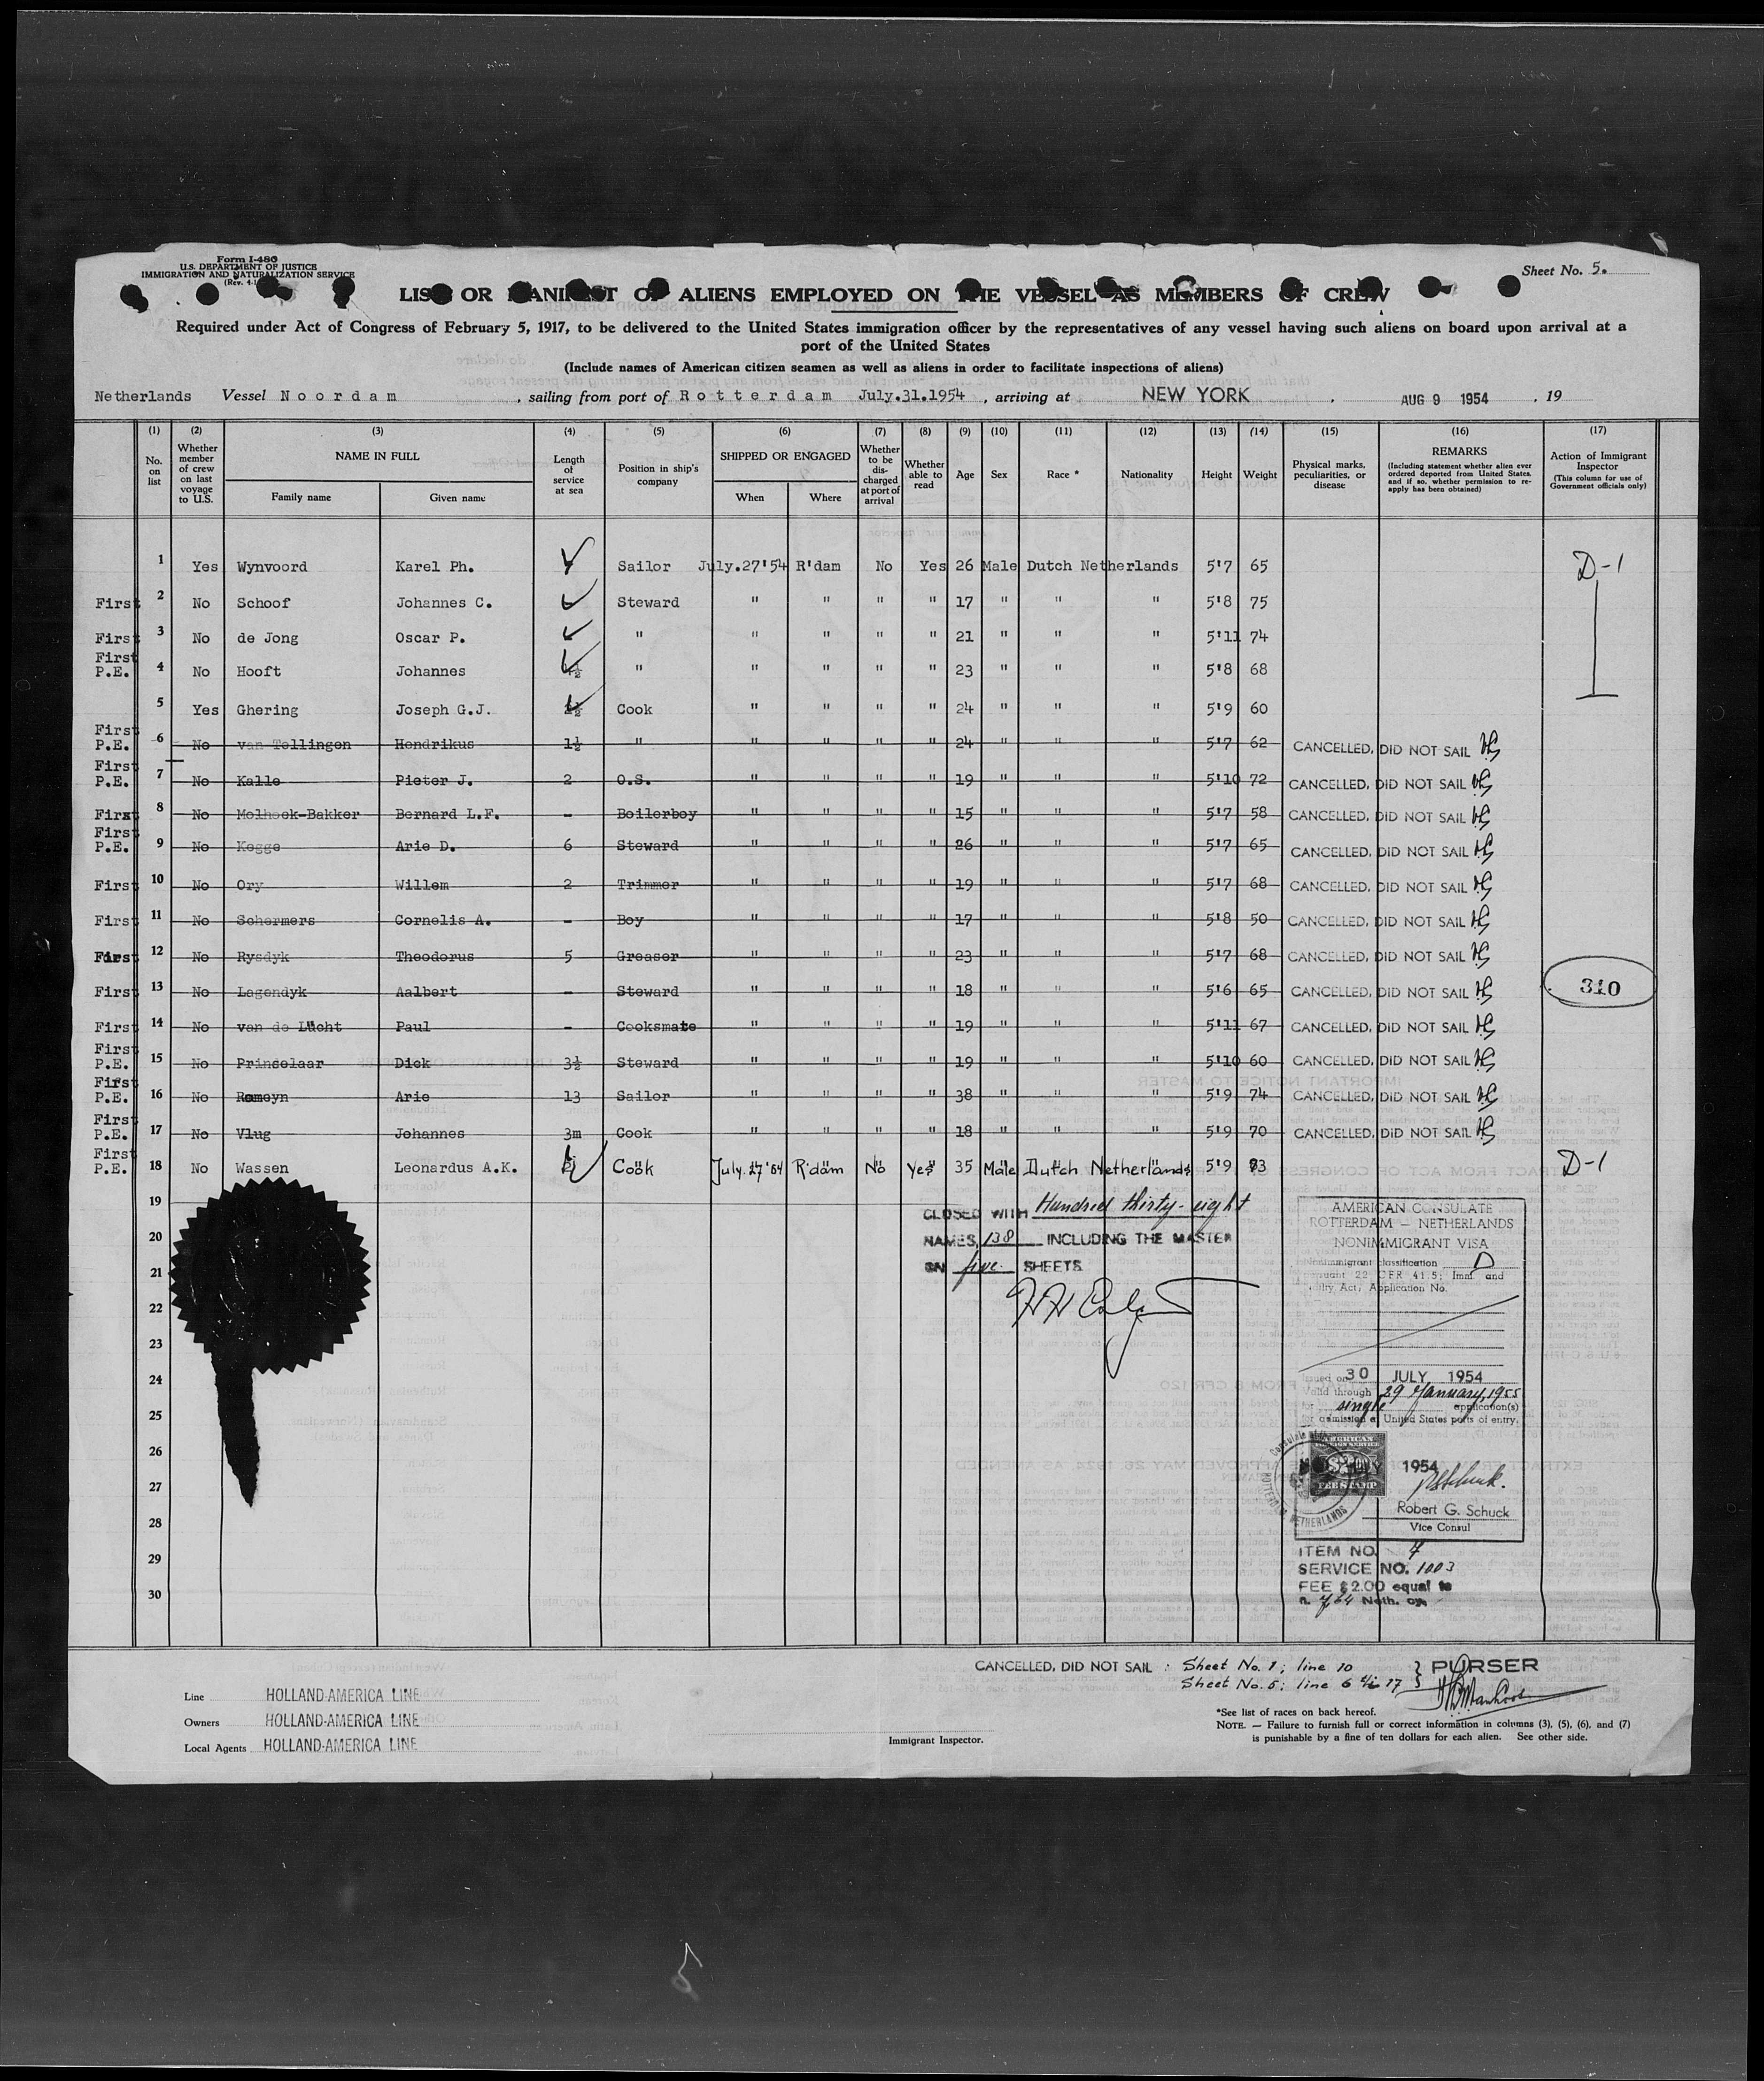 Form I-480
U.S. DEPARTMENT OF JUSTICE
IMMIGRATION AND NATURALIZATION SERVICE
Sheet No. 5.
LIST OR MANIFEST OF ALIENS EMPLOYED ON THE VESSEL AS MEMBERS OF CREW
Required under Act of Congress of February 5, 1917, to be delivered to the United States immigration officer by the representatives of any vessel having such aliens on board upon arrival at a
port of the United States
(Include names of American citizen seamen as well as aliens in order to facilitate inspections of aliens)
Netherlands Vessel Noordam, sailing from port of Rotterdam July.31.1954, arriving at NEW YORK, AUG 9 1954, 19
(1) No. on list
(2) Whether member of crew on last voyage to U.S.
(3) NAME IN FULL Family name Given name
(4) Length of service at sea
(5) Position in ship's company
(6) SHIPPED OR ENGAGED When Where
(7) Whether to be discharged at port of arrival
(8) Whether able to read
(9) Age
(10) Sex
(11) Race *
(12) Nationality
(13) Height
(14) Weight
(15) Physical marks, peculiarities, or disease
(16) REMARKS (Including statement whether alien ever ordered deported from United States, and if so, whether permission to reapply has been obtained)
(17) Action of Immigrant Inspector (This column for use of Government officials only)
1 Yes Wynvoord Karel Ph. Sailor July.27'54 R'dam No Yes 26 Male Dutch Netherlands 5'7 65 D-1
First 2 No Schoof Johannes C. Steward " " " " 17 " " " 5'8 75
First 3 No de Jong Oscar P. " " " " " 21 " " " 5'11 74
First P.E. 4 No Hooft Johannes " " " " " 23 " " " 5'8 68
5 Yes Ghering Joseph G.J. Cook " " " " 24 " " " 5'9 60
First P.E. 6 No van Tellingen Hendrikus 1½ " " " " " 24 " " " 5'7 62 CANCELLED, DID NOT SAIL
First P.E. 7 No Kalle Pieter J. 2 O.S. " " " " 19 " " " 5'10 72 CANCELLED, DID NOT SAIL
First 8 No Molhoek-Bakker Bernard L.F. - Boilerboy " " " " 15 " " " 5'7 58 CANCELLED, DID NOT SAIL
First P.E. 9 No Kegge Arie D. 6 Steward " " " " 26 " " " 5'7 65 CANCELLED, DID NOT SAIL
First 10 No Ory Willem 2 Trimmer " " " " 19 " " " 5'7 68 CANCELLED, DID NOT SAIL
First 11 No Schermers Cornelis A. - Boy " " " " 17 " " " 5'8 50 CANCELLED, DID NOT SAIL
First 12 No Rysdyk Theodorus 5 Greaser " " " " 23 " " " 5'7 68 CANCELLED, DID NOT SAIL
First 13 No Legendyk Aalbert - Steward " " " " 18 " " " 5'6 65 CANCELLED, DID NOT SAIL 310
First 14 No van de Lücht Paul - Cooksmate " " " " 19 " " " 5'11 67 CANCELLED, DID NOT SAIL
First P.E. 15 No Prinselaar Dick 3½ Steward " " " " 19 " " " 5'10 60 CANCELLED, DID NOT SAIL
First P.E. 16 No Romeyn Arie 13 Sailor " " " " 38 " " " 5'9 74 CANCELLED, DID NOT SAIL
First P.E. 17 No Vlug Johannes 3m Cook " " " " 18 " " " 5'9 70 CANCELLED, DID NOT SAIL
First P.E. 18 No Wassen Leonardus A.K. Cook July.27'54 R'dam No Yes 35 Male Dutch Netherlands 5'9 83 D-1
19
20
21
22
23
24
25
26
27
28
29
30
CLOSED WITH Hundred thirty-eight
NAMES, 138 INCLUDING THE MASTER
ON five SHEETS
AMERICAN CONSULATE
ROTTERDAM — NETHERLANDS
NONIMMIGRANT VISA
Nonimmigrant classification D
pursuant 22 CFR 41.5; Imm. and
Act; Application No.
Issued on 30 JULY 1954
Valid through 29 January, 1955
for single application(s)
for admission at United States ports of entry.
AMERICAN
FOREIGN SERVICE
$2.00
FEE STAMP
1954
NETHERLANDS
Robert G. Schuck
Vice Consul
ITEM NO. 4
SERVICE NO. 1003
FEE $2.00 equal to
CANCELLED, DID NOT SAIL : Sheet No. 1; line 10
Sheet No. 5; line 6 t/m 17
PURSER
Line HOLLAND-AMERICA LINE
Owners HOLLAND-AMERICA LINE
Local Agents HOLLAND-AMERICA LINE
Immigrant Inspector.
*See list of races on back hereof.
NOTE. — Failure to furnish full or correct information in columns (3), (5), (6), and (7)
is punishable by a fine of ten dollars for each alien. See other side.